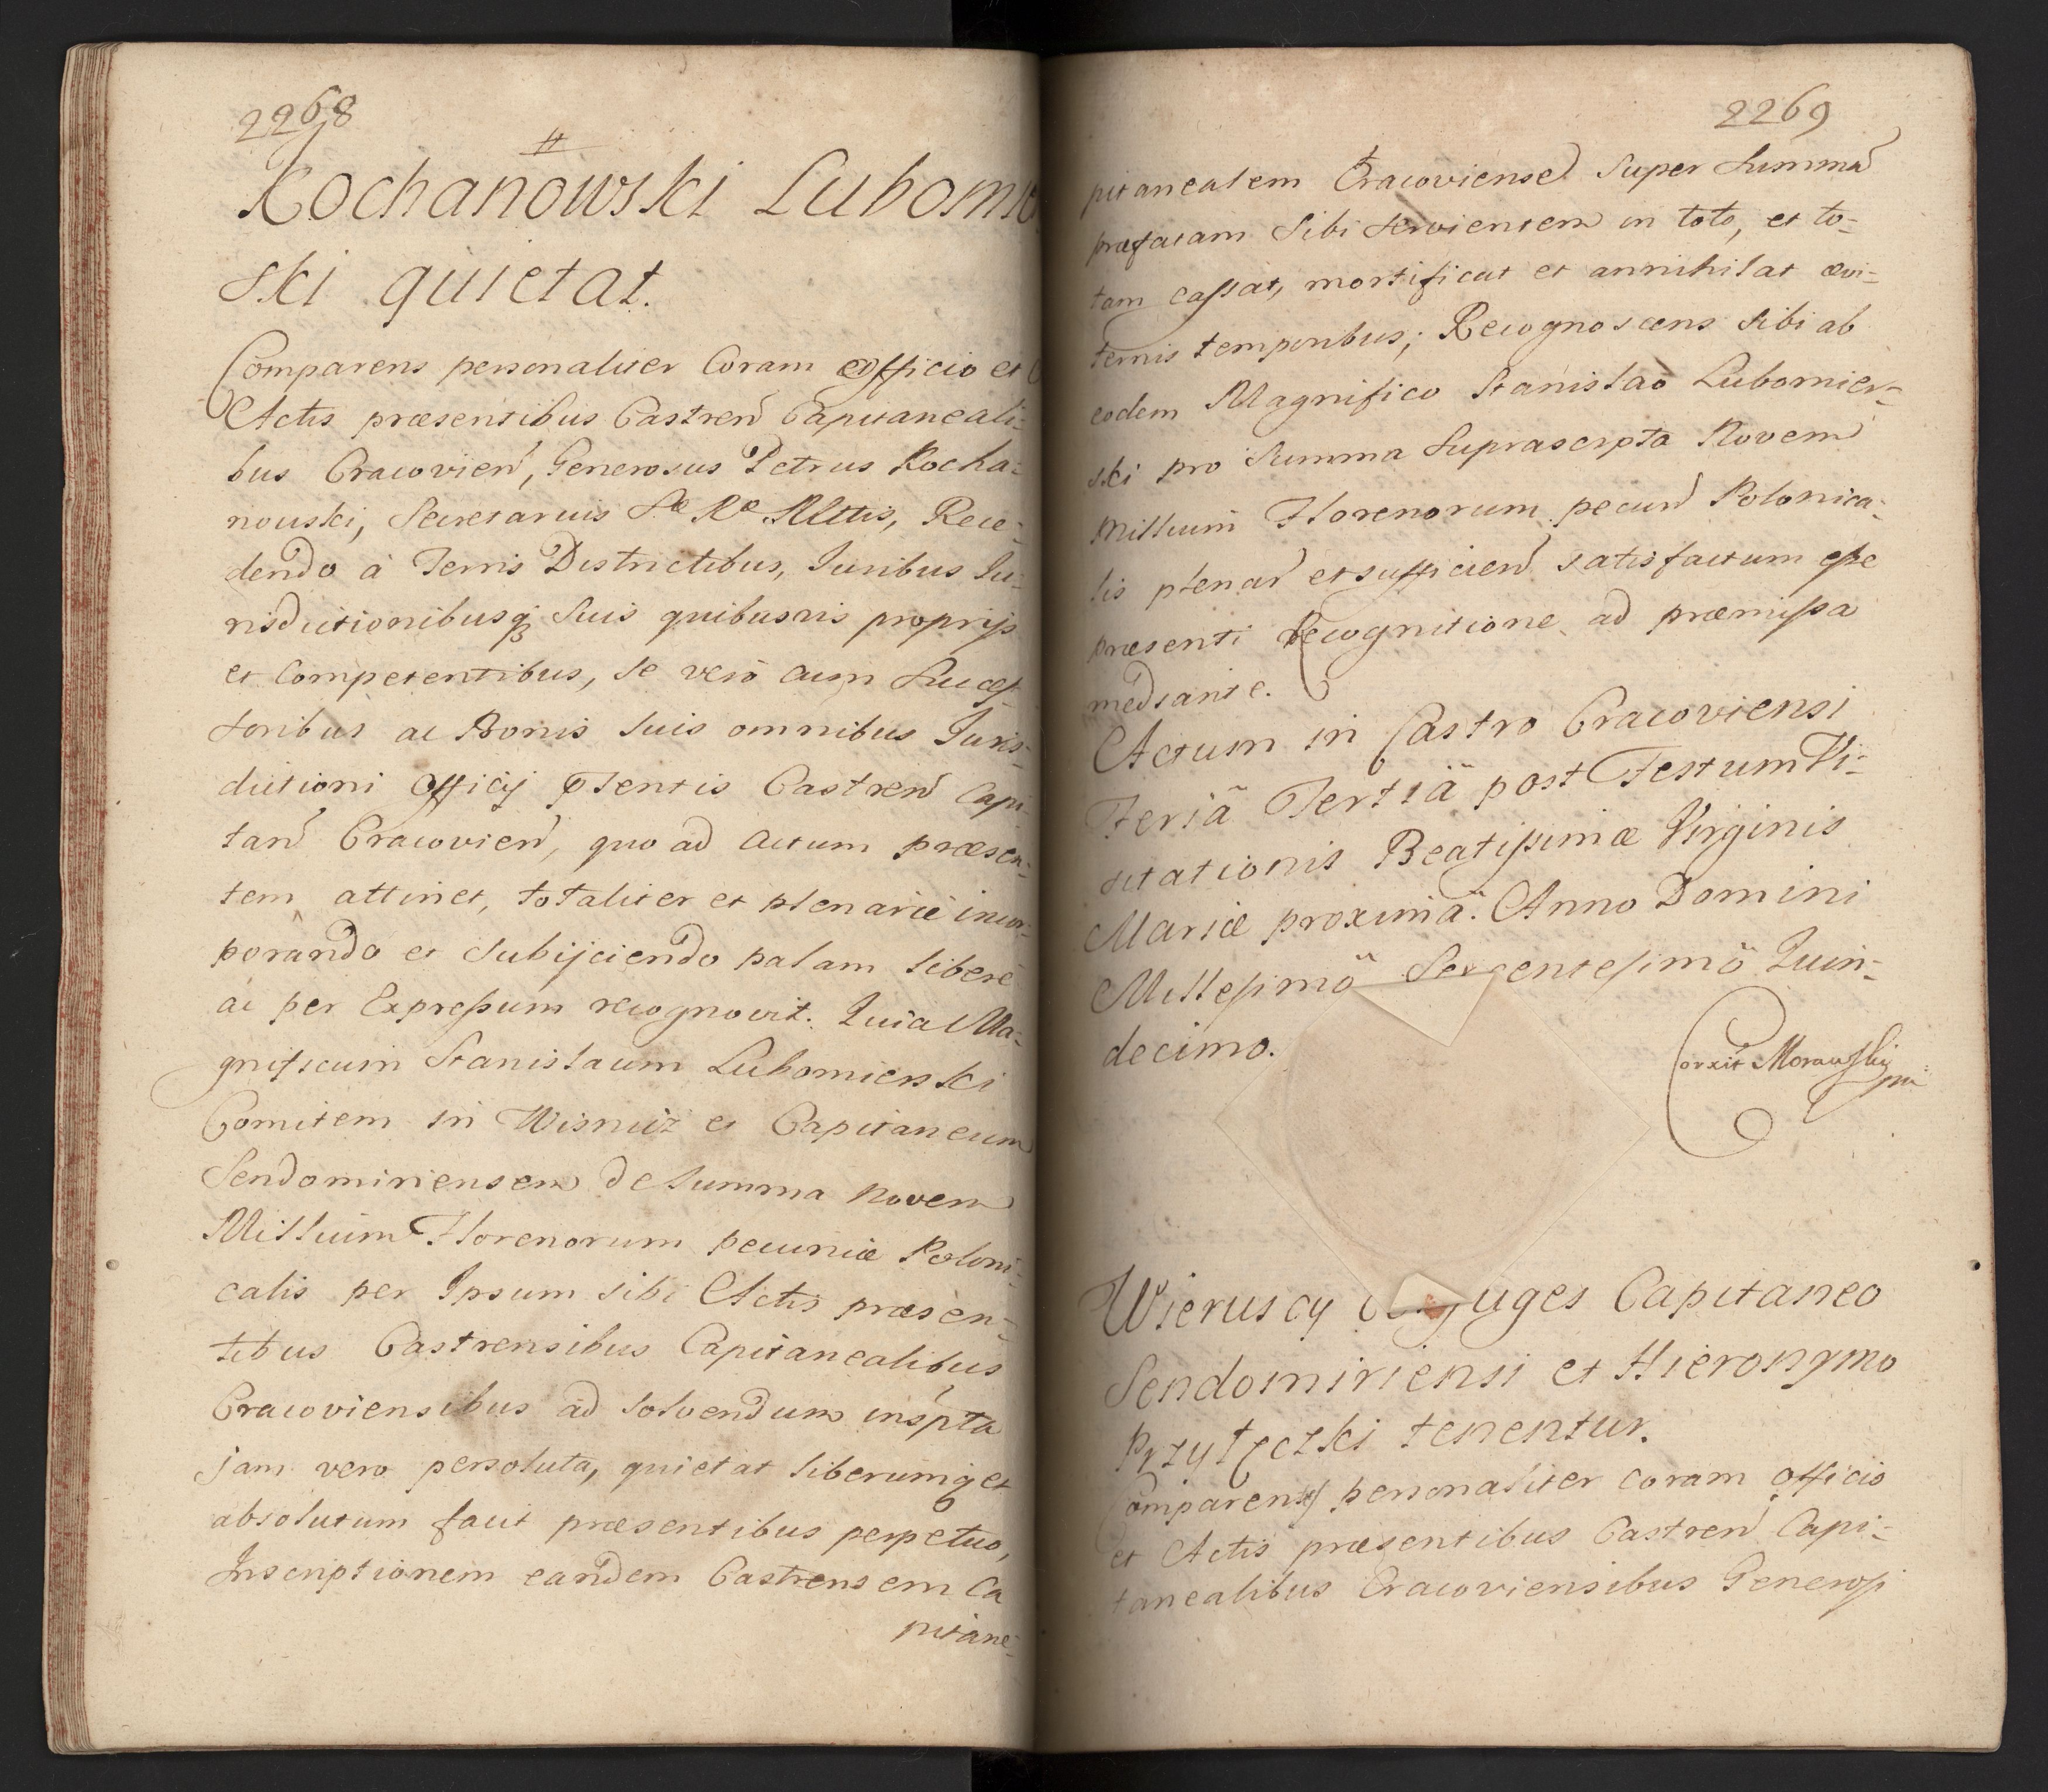 2268
Kochanowski Lubomir
ski quietat.
Comparens personaliter Coram Officio et
Actis præsentibus Castren Capitaneali-
bus Cracovien, Generosus Petrus Kocha-
nouski, Secretarius Sæ Ræ Mttis, Rece-
dendo à Terris Districtibus, Iuribus Iu-
risdictionibusq suis quibusvis proprijs
et Competentibus, se vero cum Succes-
soribus ac Bonis suis omnibus Juris-
dictioni Officij Pntentis Castren Capi-
tan Cracovien, quo ad Actum præsen-
tem attinet, totaliter et plenarie incor-
porando et subijciendo palam liberè
ac per Expressum recognovit. Quia Ma-
gnificum Stanislaum Lubomierski
Comitem in Wisnicz et Capitaneum
Sendomiriensem de summa Novem
Millium Florenorum pecuniæ Poloni-
calis per Ipsum sibi Actis præsen-
tibus Castrensibus Capitanealibus
Cracoviensibus ad solvendum inspta
jam vero persoluta, quietat liberumq et
absolutum facit præsentibus perpetuo,
Inscriptionem eandem Castrensem Ca
pitane-
2269
pitanealem Cracoviensem super Summa
præfatam sibi servientem in toto, et to-
tam cassat, mortificat et annihilat ævi-
ternis temporibus; Recognoscens sibi ab
eodem Magnifico Stanislao Lubomier-
ski pro Summa suprascripta Novem
Millium Florenorum pecun Polonica-
lis plenar et sufficien satisfactum esse
præsenti Recognitione ad præmissa
mediante.
Actum in Castro Cracoviensi
Feriâ Tertiâ post Festum Vi-
sitationis Beatissimæ Virginis
Mariæ proximâ. Anno Domini
Millesimô Sexcentesimô Quin-
decimo.
Corxit Morawski
mp
Wieruscy Conjuges Capitaneo
Sendomiriensi et Hieronymo
Przyłęczki tenentur.
Comparentes personaliter coram Officio
et Actis præsentibus Castren Capi-
tanealibus Cracoviensibus Generosi